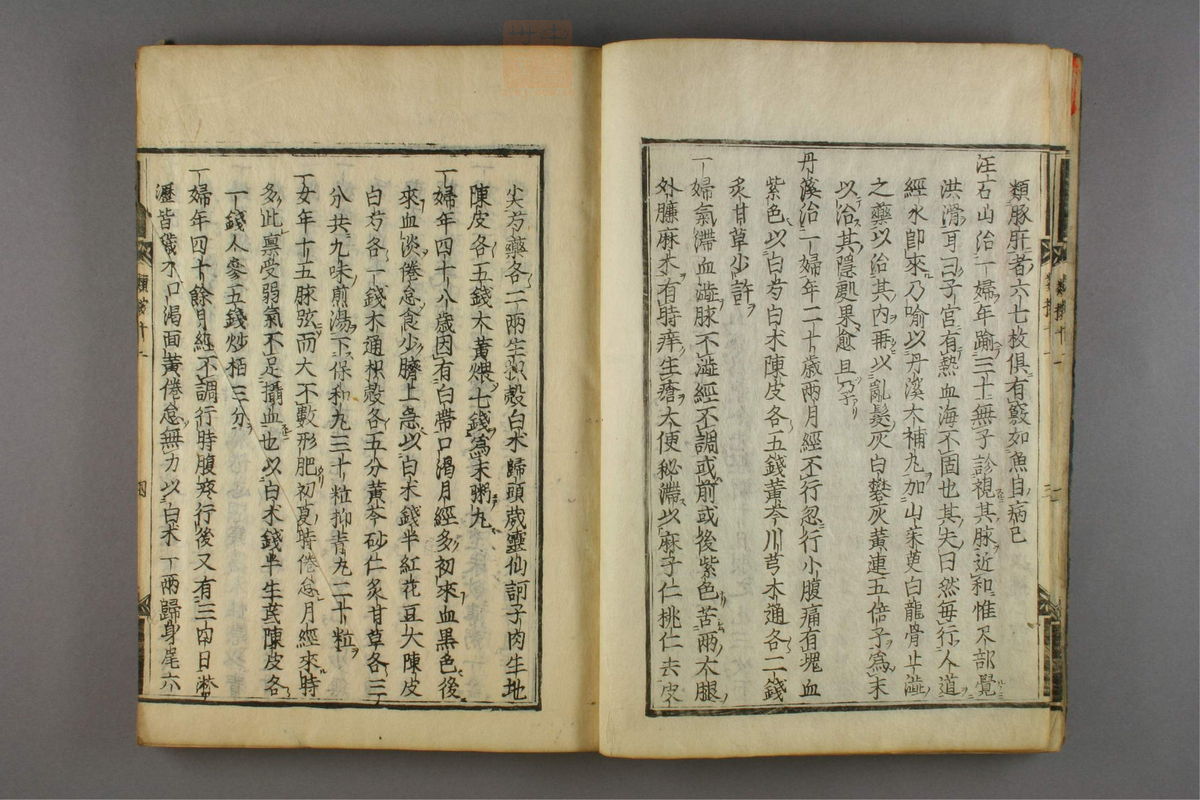 類豚肝者六七枚俱有竅如魚目病已
汪石山治一婦年踰三十無子診視其脉近和惟尺部覺
洪滑耳曰子宮有熱血海不固也其夫曰然每行人道
經水卽來乃喻以丹溪大補丸加山茱萸白龍骨止澁
之藥以治其內再以亂髮灰白礬灰黃連五倍子爲末
以治其隱處果愈且孕
丹溪治一婦年二十歲兩月經不行忽行小腹痛有塊血
紫色以白芍白朮陳皮各五錢黃芩川芎木通各二錢
炙甘草少許
一婦氣滯血澁脉不澁經不調或前或後紫色苦兩大腿
外臁麻木有時痒生瘡大便秘滯以麻子仁桃仁去皮
尖芍藥各二兩生枳殼白朮歸頭葳靈仙訶子肉生地
陳皮各五錢大黃煨七錢爲末粥丸
一婦年四十八歲因有白帶口渴月經多初來血黑色後
來血淡倦怠食少臍上急以白朮錢半紅花豆大陳皮
白芍各一錢木通枳殼各五分黃芩砂仁炙甘草各三
分共九味煎湯下保和丸三十粒抑青丸二十粒
一女年十五脉弦而大不數形肥初夏時倦怠月經來時
多此禀受弱氣不足攝血也以白朮錢半生芪陳皮各
一錢人參五錢炒栢三分
一婦年四十餘月經不調行時腹疼行後又有三四日淋
瀝皆穢水口渴面黃倦怠無力以白朮一兩歸身尾六